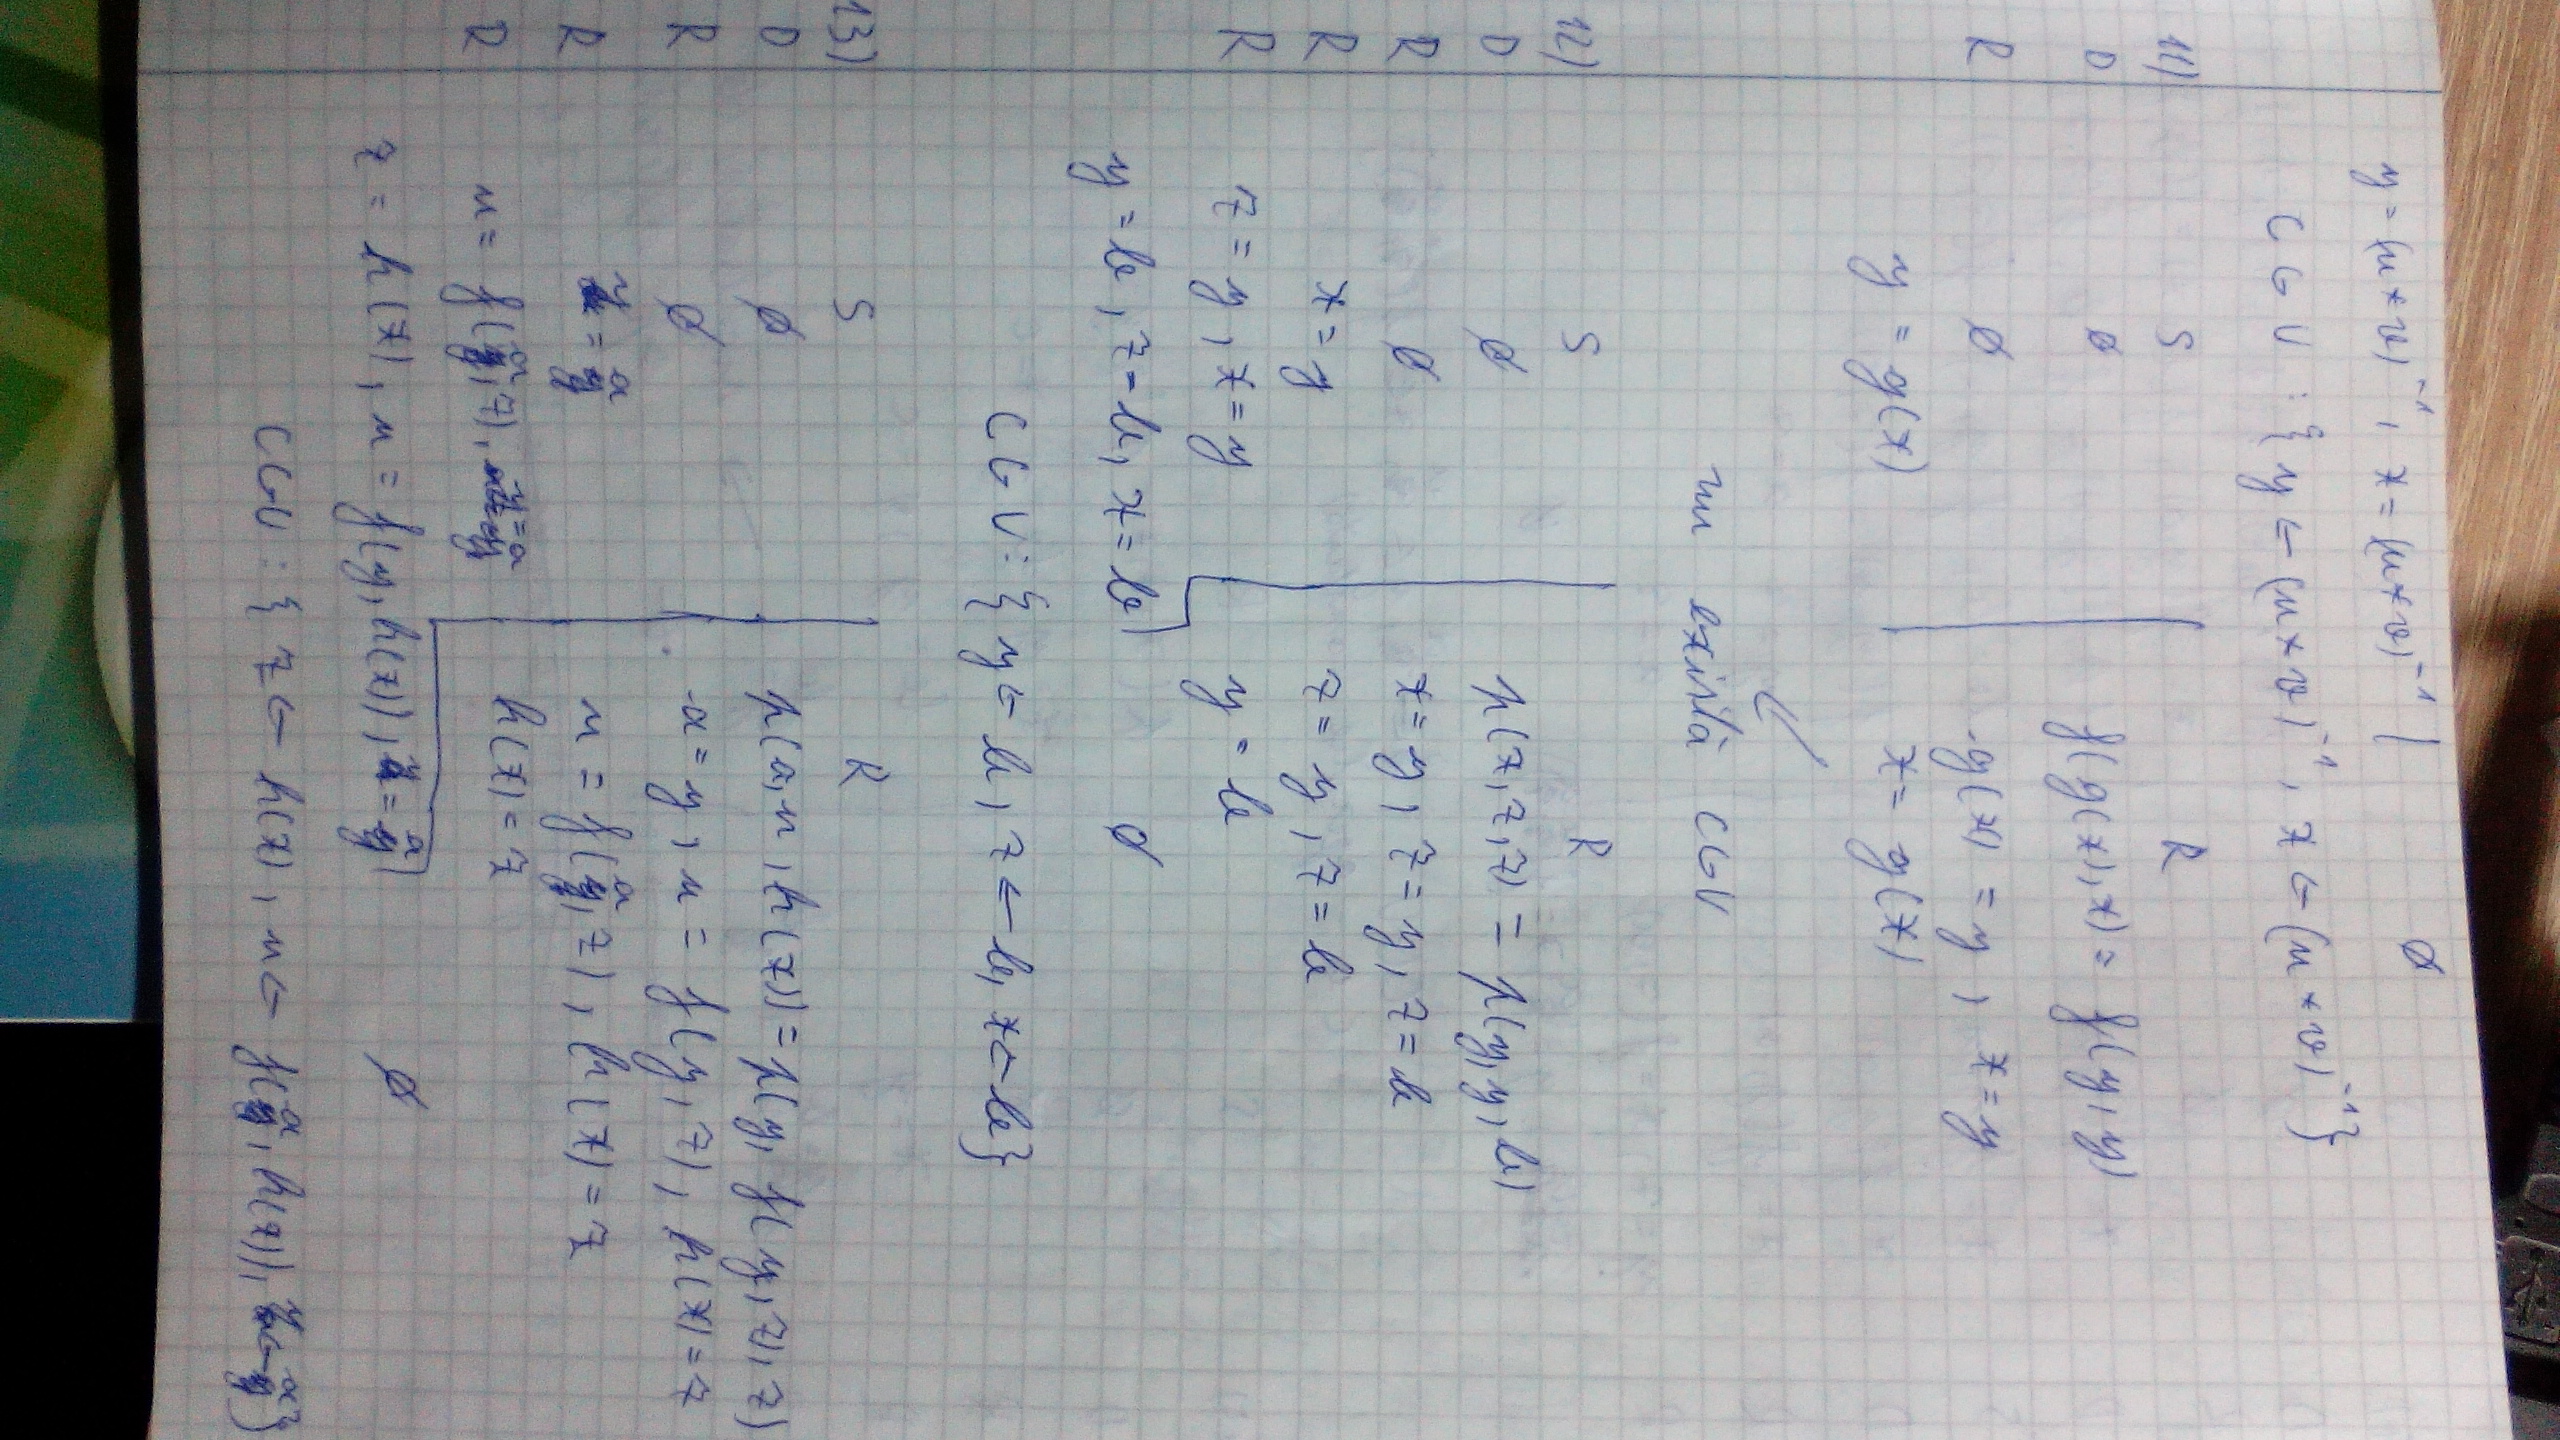 y = (u * v)⁻¹, x = (u * v)⁻¹ | ∅
CGU : { y ← (u * v)⁻¹, x ← (u * v)⁻¹ }
11) S | R
D ∅ | f(g(x), x) = f(y, y)
R ∅ | g(x) = y, x = y
y = g(x) | x = g(x)
nu există CGU
12) S | R
D ∅ | p(x, z, z) = p(y, y, b)
R ∅ | x = y, z = y, z = b
R x = y | z = y, z = b
R z = y, x = y | y = b
y = b, z = b, x = b | ∅
CGU : { y ← b, z ← b, x ← b }
13) S | R
D ∅ | p(a, u, h(x)) = p(y, f(y, z), z)
R ∅ | a = y, u = f(y, z), h(x) = z
R y = a | u = f(a, z), h(x) = z
R u = f(a, z), y = a | h(x) = z
z = h(x), u = f(y, h(x)), y = a | ∅
CGU : { z ← h(x), u ← f(a, h(x)), y ← a }